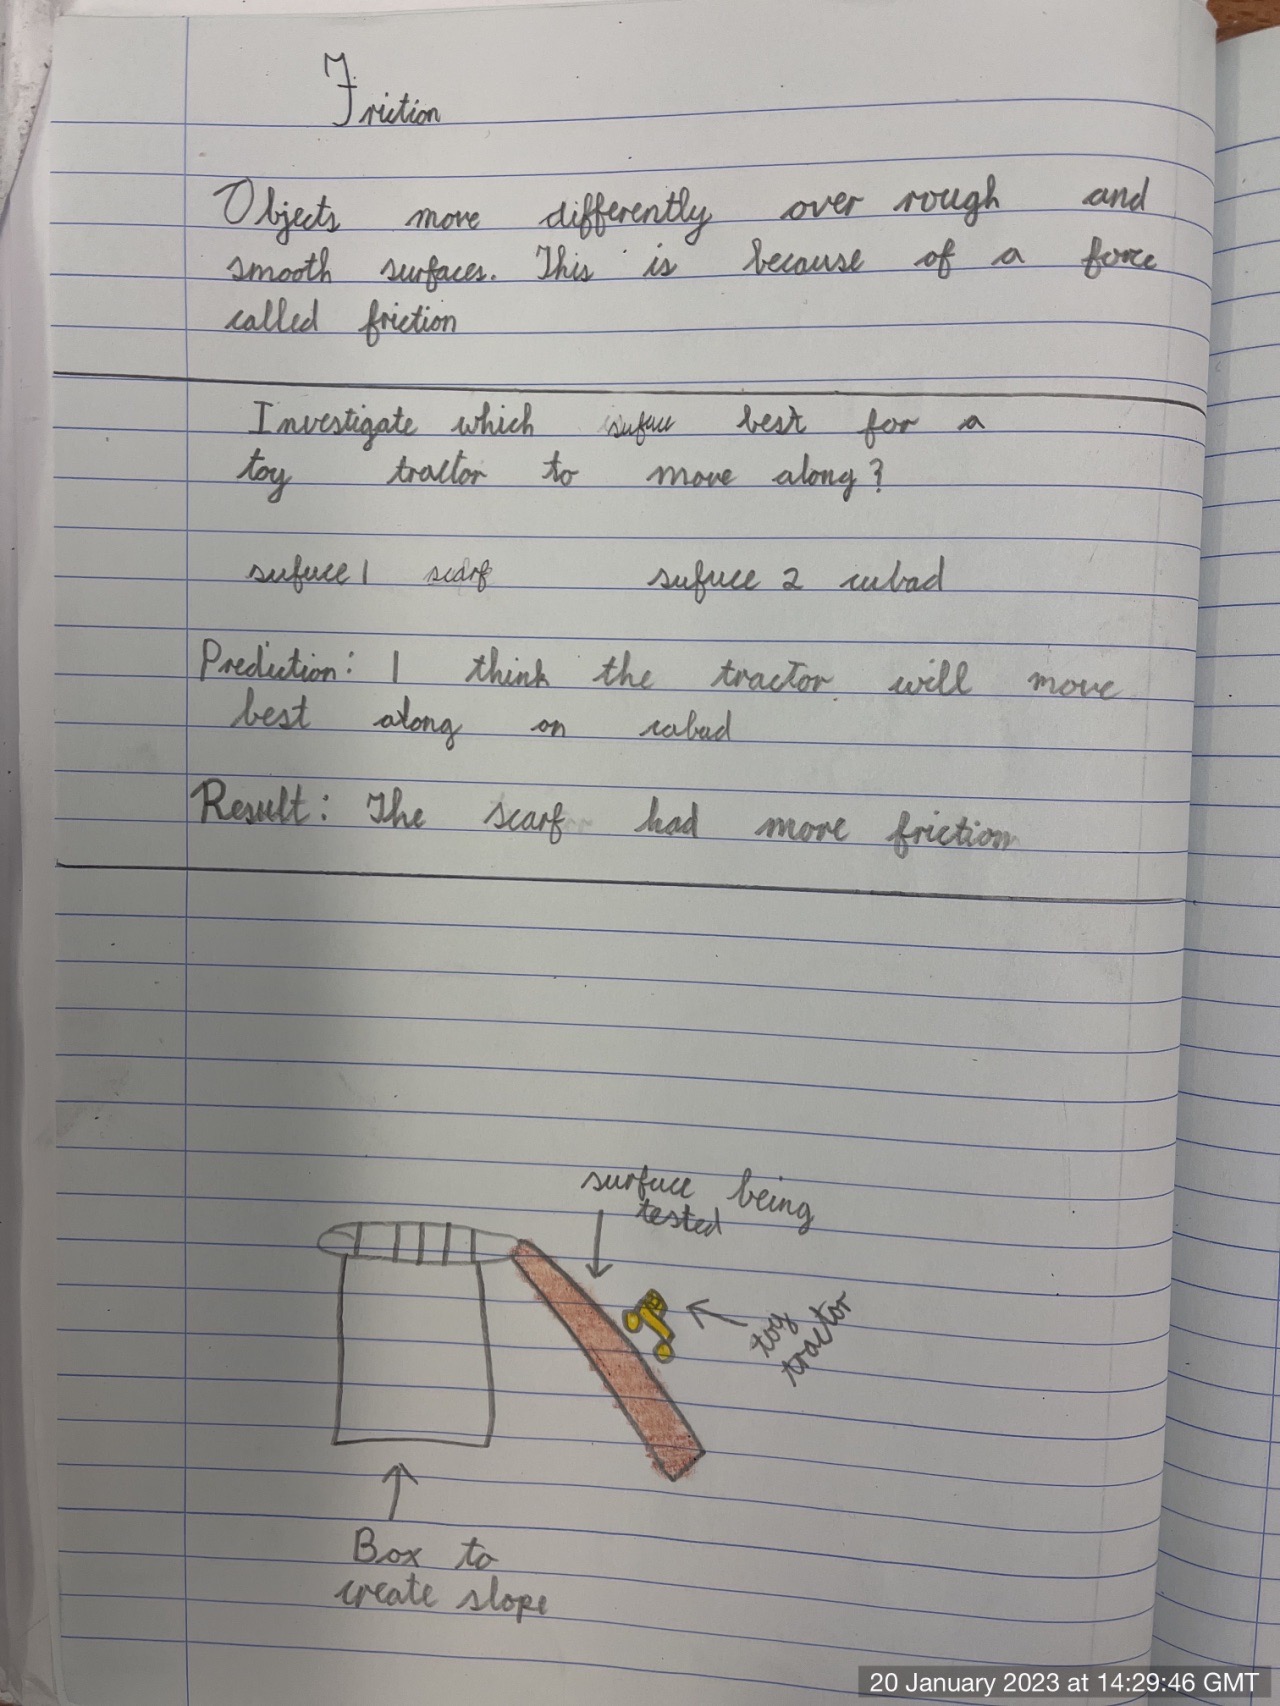 Friction
Objects move differently over rough and
smooth surfaces. This is because of a force
called friction
Investigate which sufuce best for a
toy tractor to move along?
sufuce 1 scarf sufuce 2 cubad
Prediction: I think the tractor will move
best along on cabad
Result: The scarf had more friction
surface being
tested
toy
tractor
Box to
create slope
20 January 2023 at 14:29:46 GMT